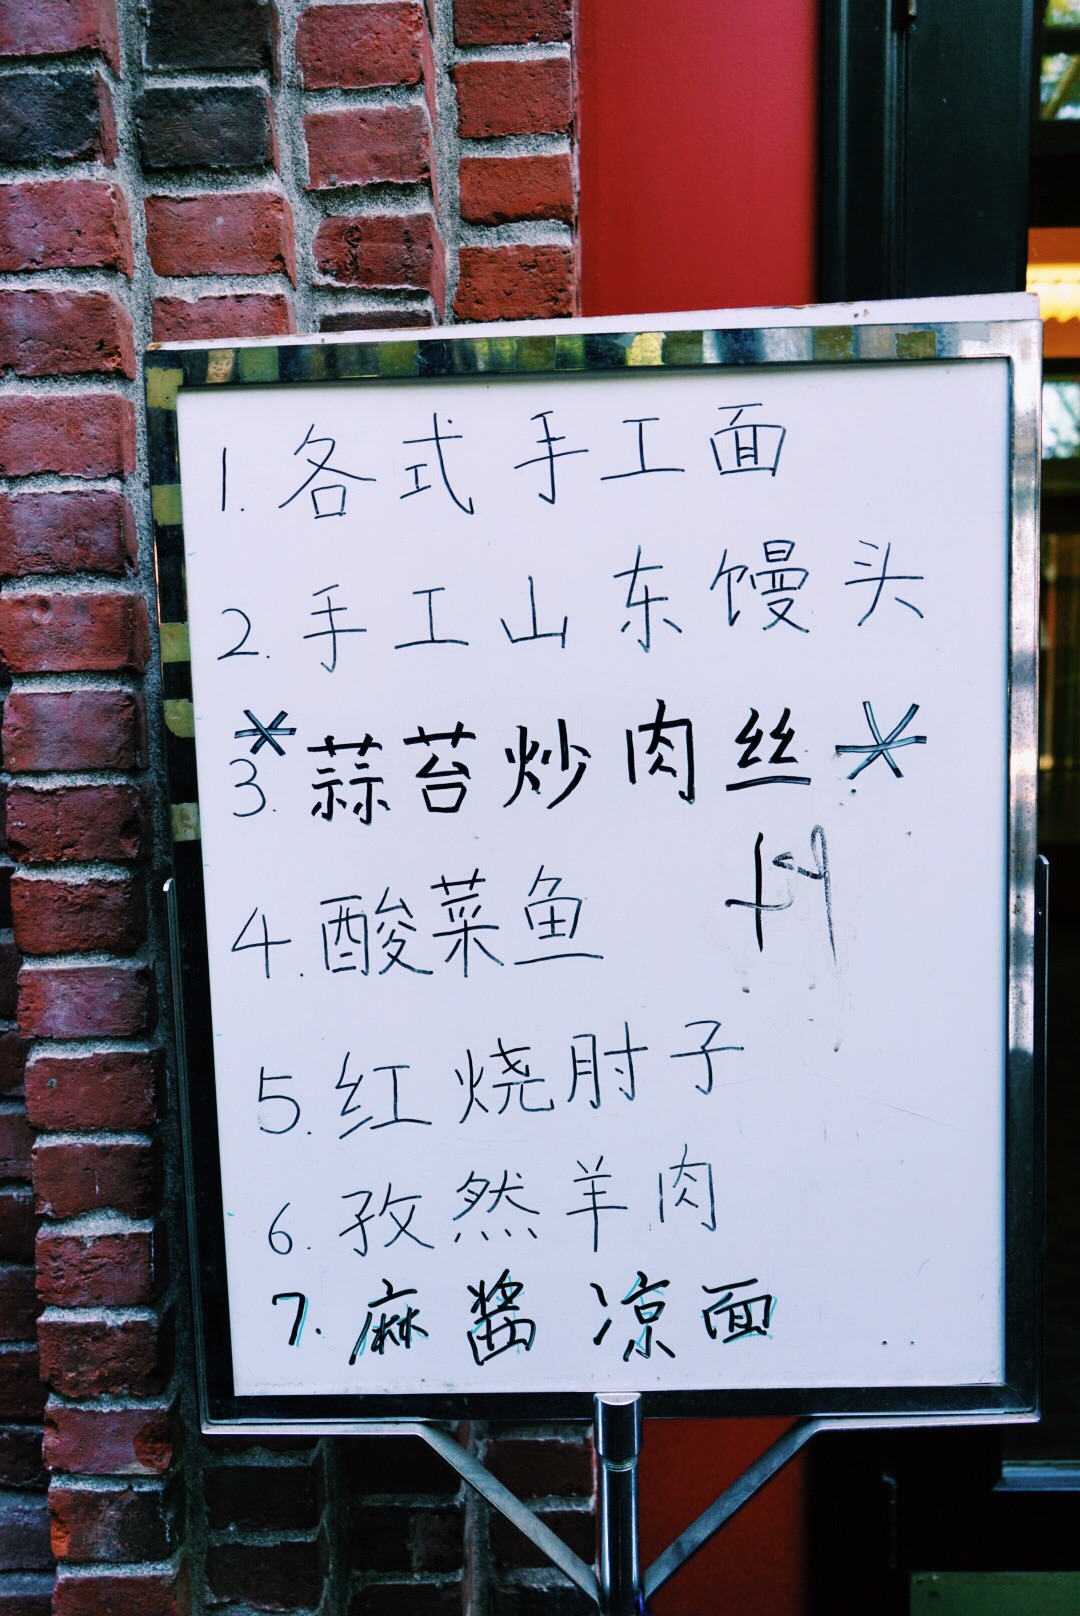 1. 各式手工面
2. 手工山东馒头
*3. 蒜苔炒肉丝*
4. 酸菜鱼
5. 红烧肘子
6. 孜然羊肉
7. 麻酱凉面